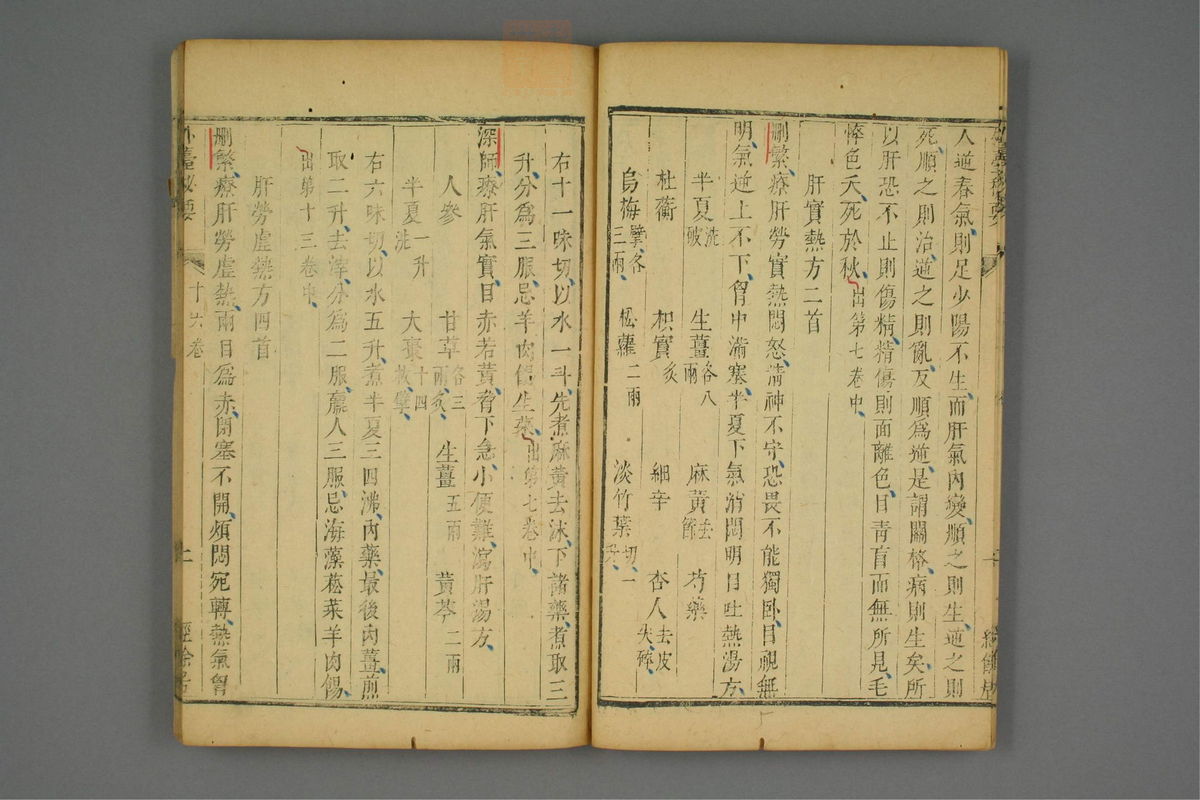 人逆春氣則足少陽不生而肝氣內變順之則生逆之則
死順之則治逆之則亂反順爲逆是謂關格病則生矣所
以肝恐不止則傷精精傷則面離色目青盲而無所見毛
悴色夭死於秋出第七卷中
肝實熱方二首
刪繁療肝勞實熱悶怒精神不守恐畏不能獨卧目視無
明氣逆上不下胷中滿塞半夏下氣消悶明目吐熱湯方
半夏洗破 生薑各八兩 麻黃去節 芍藥 杏人去皮尖碎
杜蘅 枳實炙 細辛
烏梅擘各三兩 松蘿二兩 淡竹葉切一升
右十一味切以水一斗先煮麻黃去沫下諸藥煮取三
升分爲三服忌羊肉餳生菜出第七卷中
深師療肝氣實目赤若黃脅下急小便難瀉肝湯方
人參 甘草各三兩炙 生薑五兩 黃芩二兩
半夏一升洗 大棗十四枚擘
右六味切以水五升煮半夏三四沸內藥最後內薑煎
取二升去滓分爲二服羸人三服忌海藻菘菜羊肉餳
出第十三卷中
肝勞虛熱方四首
刪繁療肝勞虛熱兩目爲赤閉塞不開煩悶宛轉熱氣胷
外臺祕要 十六卷 七 經餘居